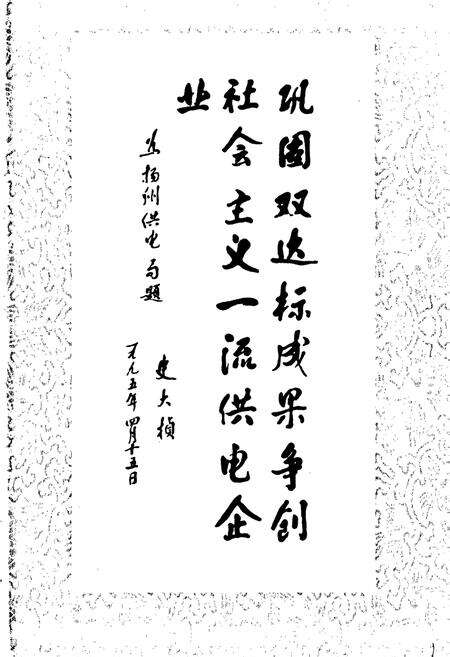 巩固双达标成果争创
社会主义一流供电企
业
为扬州供电局题
史大桢
一九九五年四月十五日